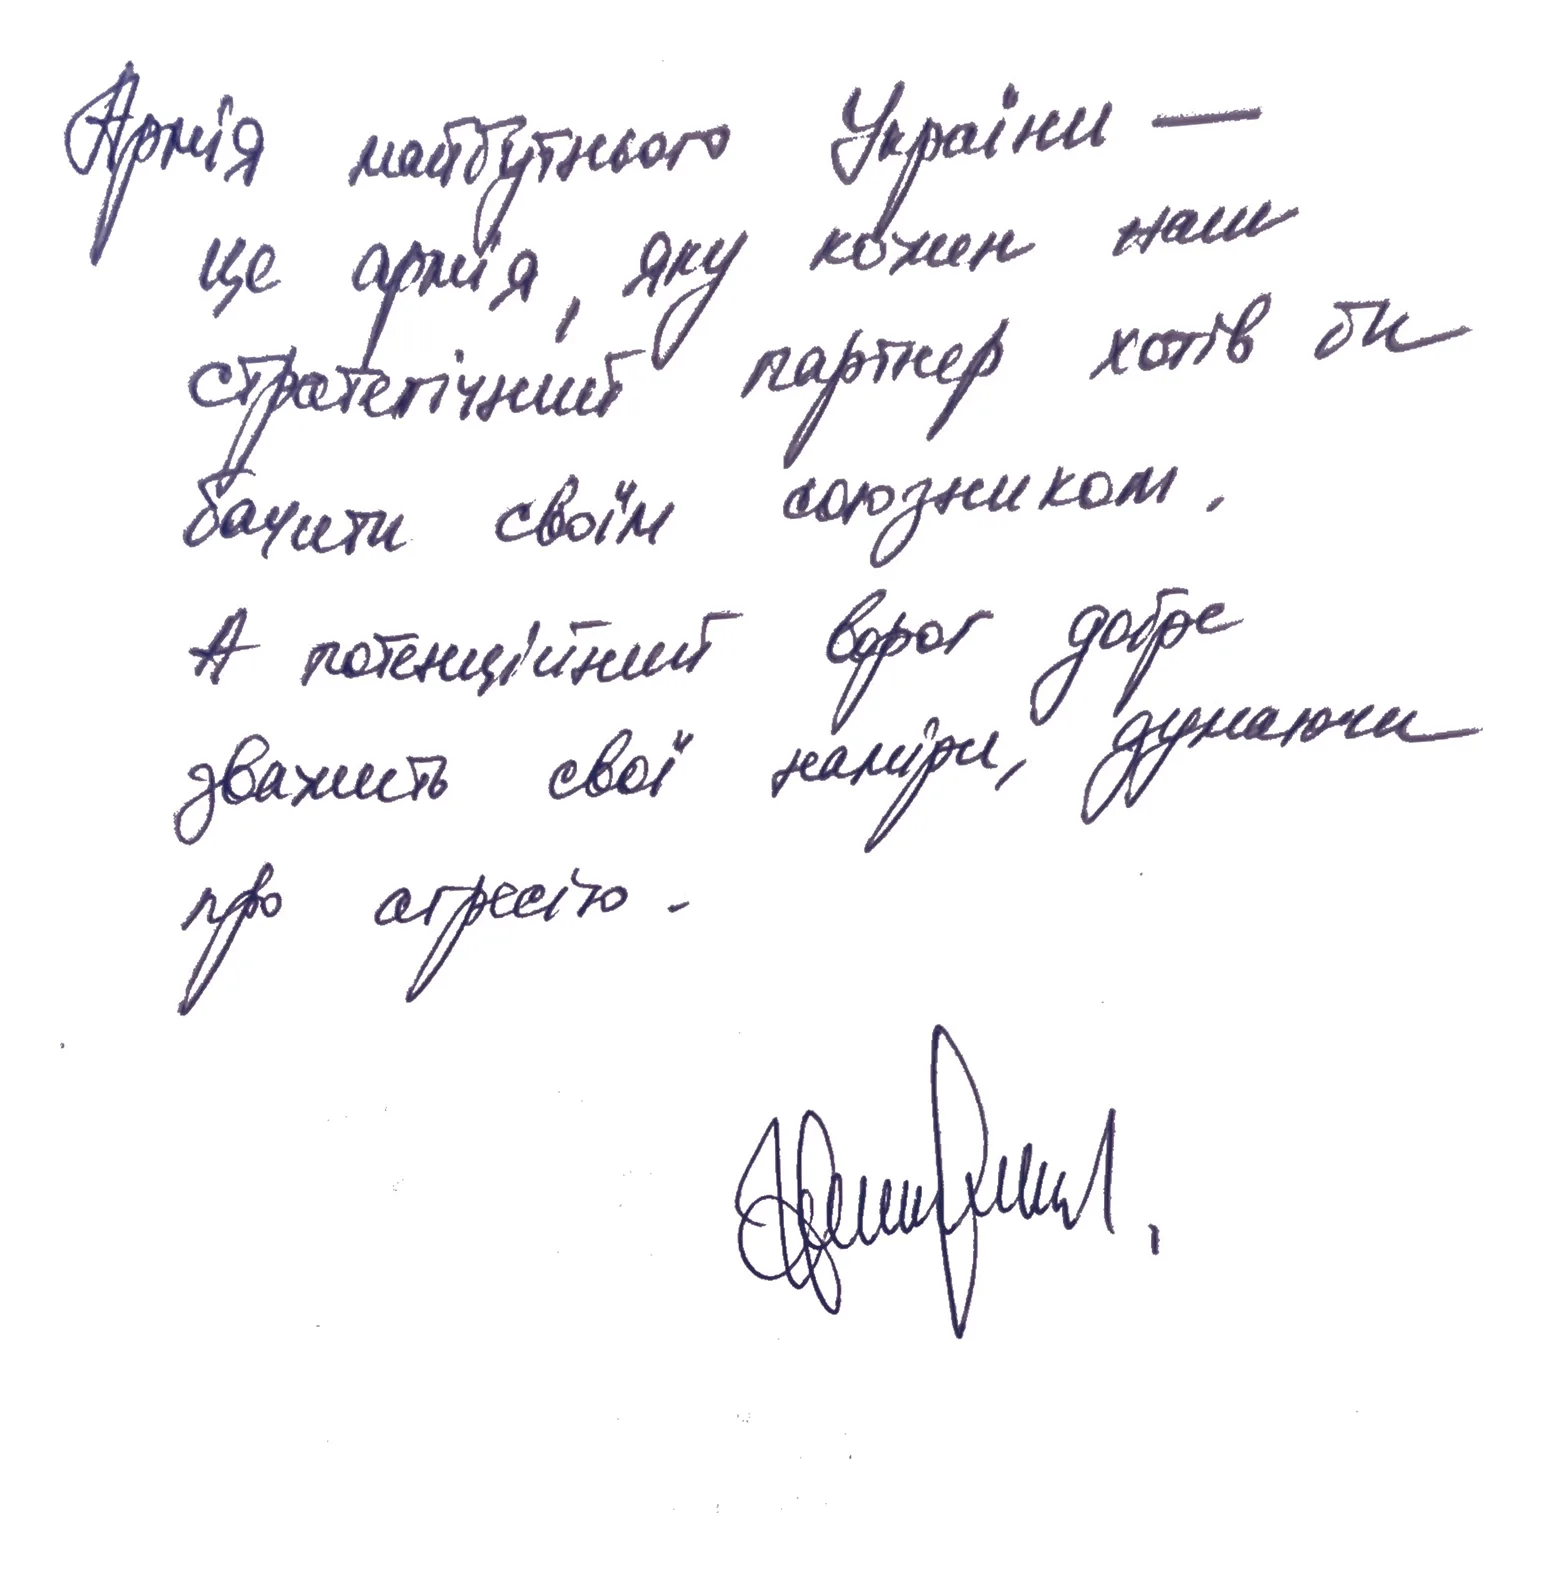 Армія майбутнього України —
це армія, яку кожен наш
стратегічний партнер хотів би
бачити своїм союзником.
А потенційний ворог добре
зважить свої наміри, думаючи
про агресію.